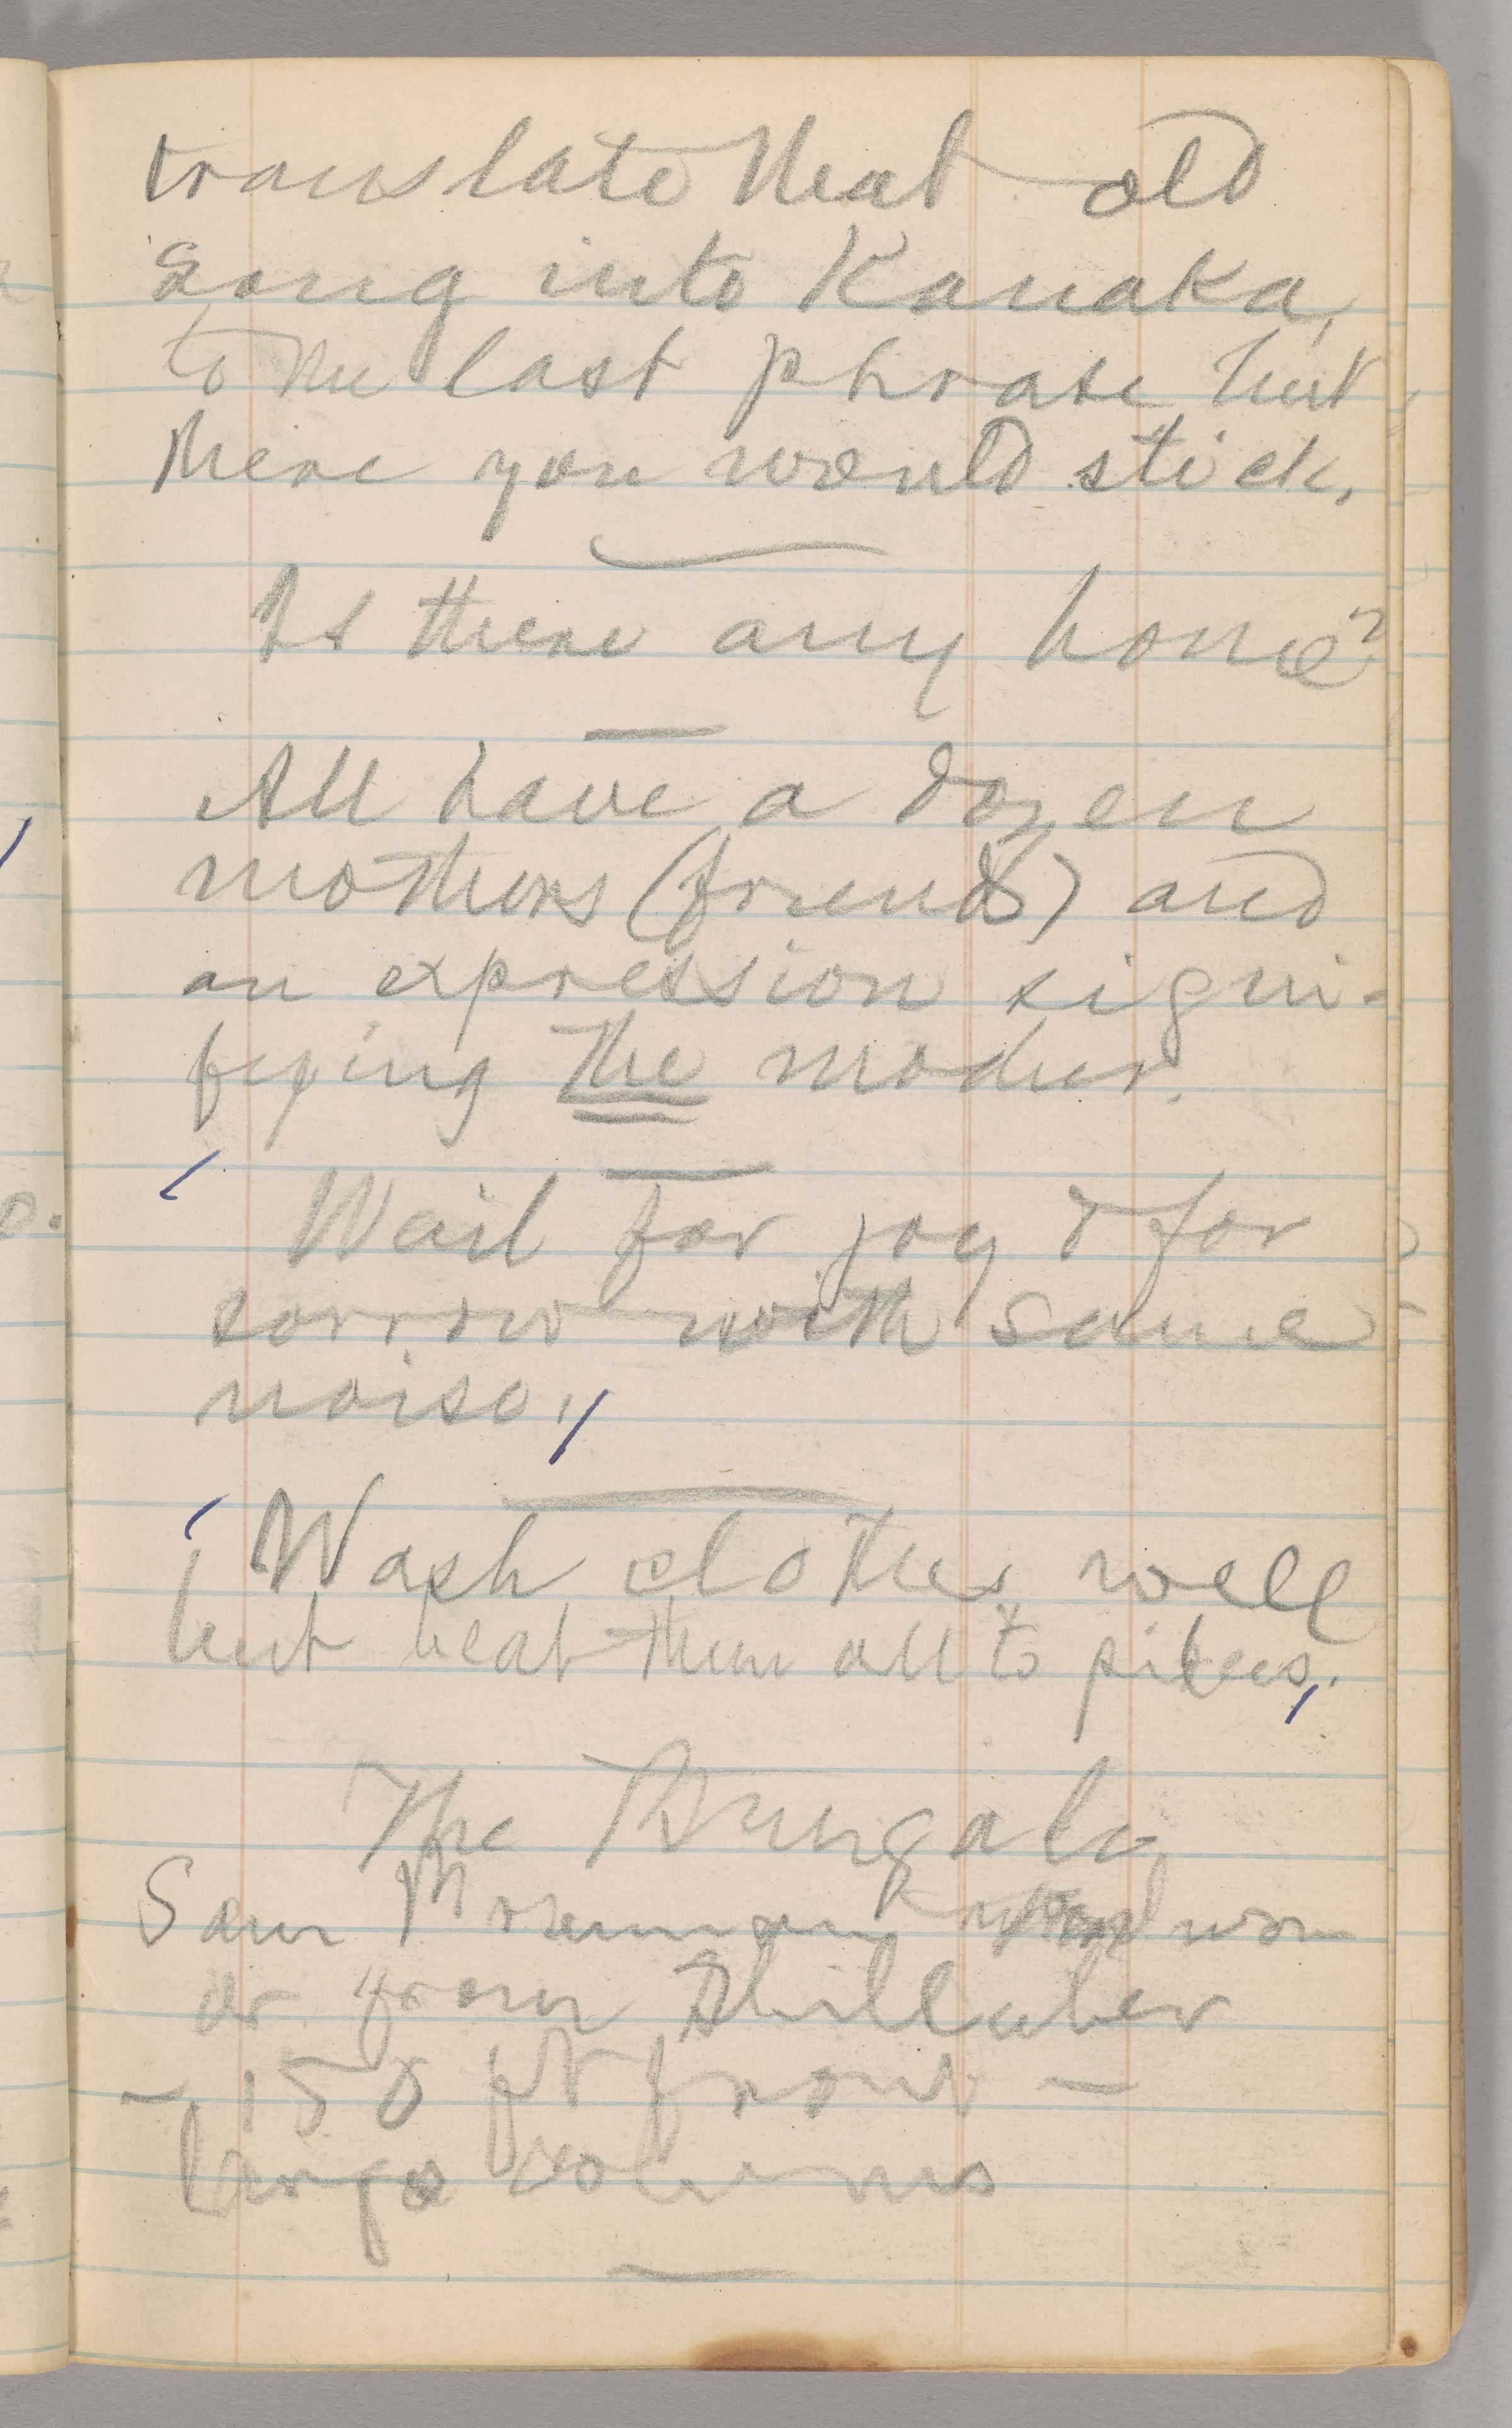 translate that old
song into Kanaka,
to the last phrase but
there you would stick.
Is there any home?
All have a dozen
mothers (friends) and
an expression signi-
fying the mother.
Wail for joy & for
sorrow with same
noise.
Wash clothes well
but beat them all to pieces.
The Bungalo
Sam Brannan won
or from Shillaber
– 150 ft front –
large columns